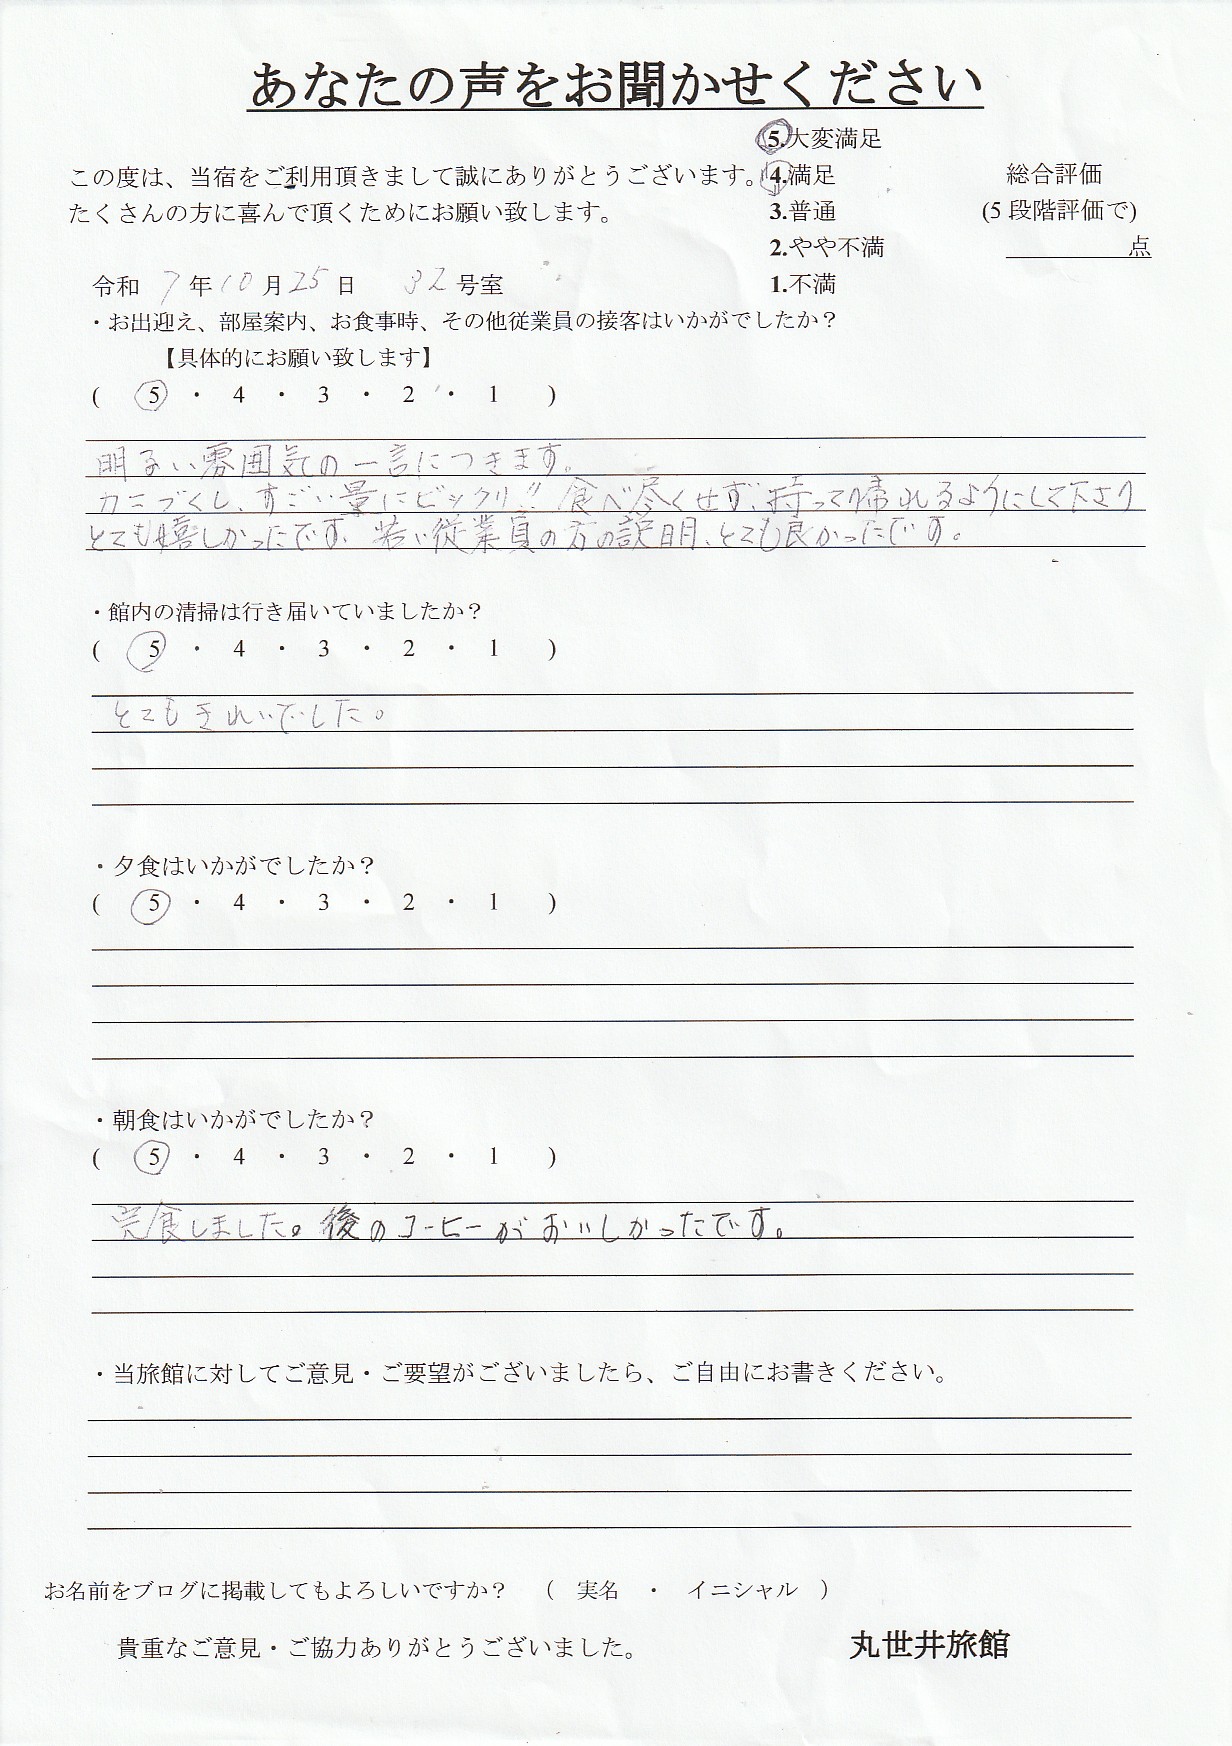 あなたの声をお聞かせください
5.大変満足
この度は、当宿をご利用頂きまして誠にありがとうございます。 4.満足 総合評価
たくさんの方に喜んで頂くためにお願い致します。 3.普通 (5段階評価で)
2.やや不満 点
令和 7年10月25日 32号室 1.不満
・お出迎え、部屋案内、お食事時、その他従業員の接客はいかがでしたか？
【具体的にお願い致します】
( 5 ・ 4 ・ 3 ・ 2 ・ 1 )
明るい雰囲気の一言につきます。
カニづくし、すごい量にビックリ!! 食べ尽くせず、持って帰れるようにして下さり
とても嬉しかったです、若い従業員の方の説明、とても良かったです。
・館内の清掃は行き届いていましたか？
( 5 ・ 4 ・ 3 ・ 2 ・ 1 )
とてもきれいでした。
・夕食はいかがでしたか？
( 5 ・ 4 ・ 3 ・ 2 ・ 1 )
・朝食はいかがでしたか？
( 5 ・ 4 ・ 3 ・ 2 ・ 1 )
完食しました。後のコーヒーがおいしかったです。
・当旅館に対してご意見・ご要望がございましたら、ご自由にお書きください。
お名前をブログに掲載してもよろしいですか？ （ 実名 ・ イニシャル ）
貴重なご意見・ご協力ありがとうございました。 丸世井旅館